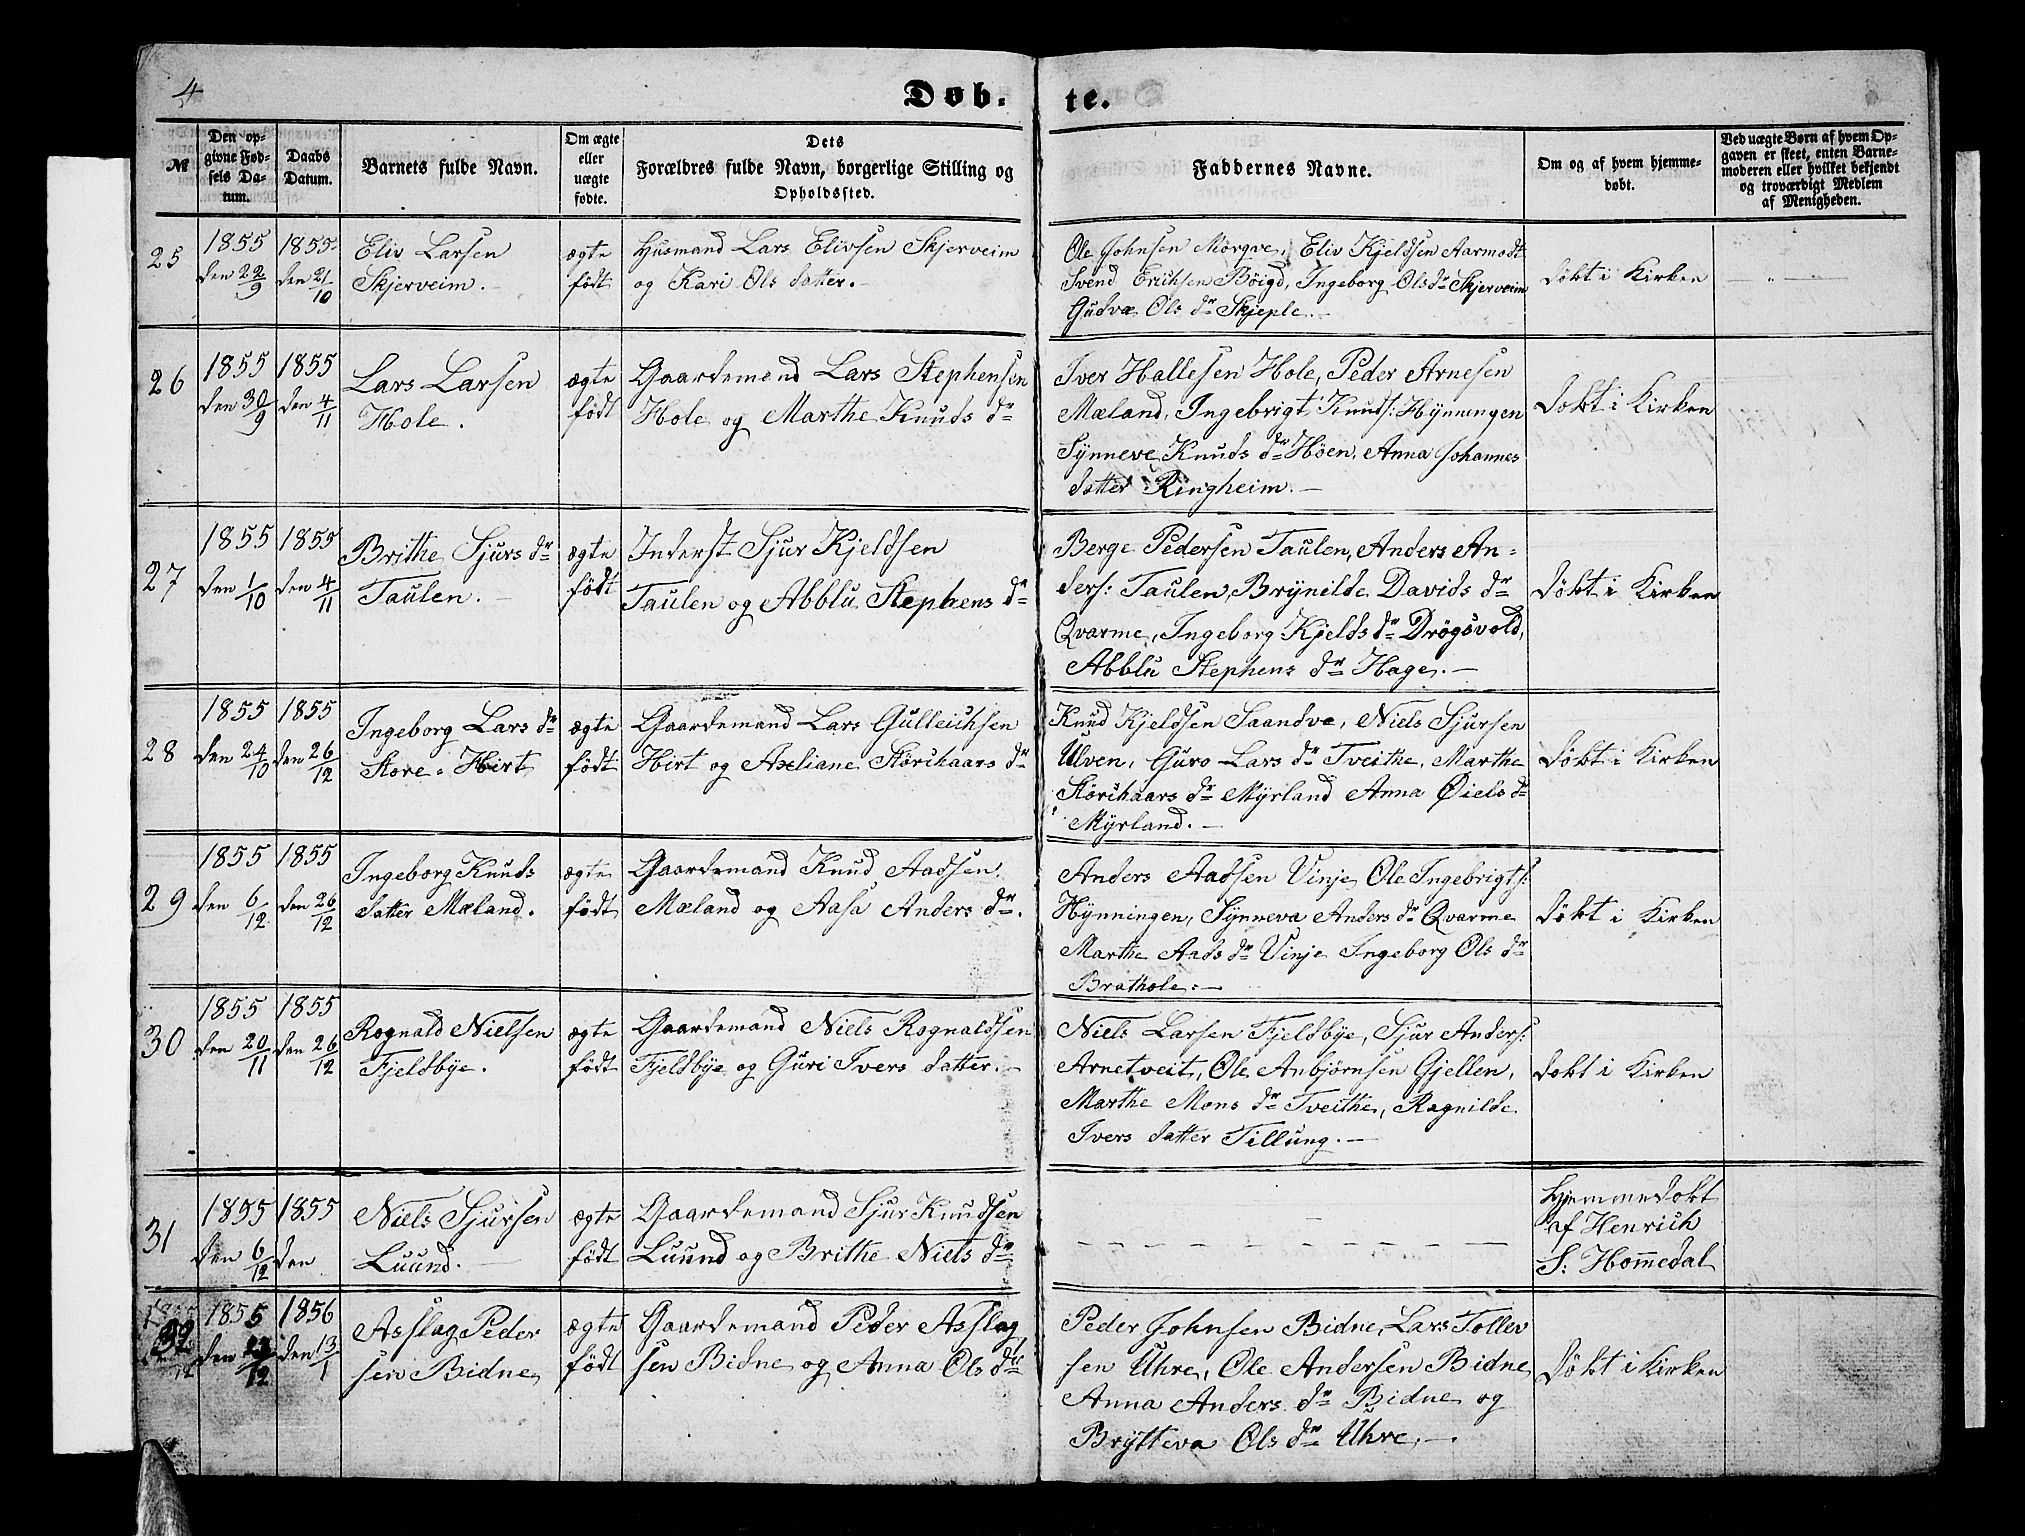 4
Døb-
te.
№
Den op-
givne Fød-
sels Da-
tum.
Daabs
Datum.
Barnets fulde Navn.
Om ægte
eller
uægte
fødte.
Dets
Forældres fulde Navn, borgerlige Stilling og
Opholdssted.
Faddernes Navne.
Om og af hvem hjemme-
døbt.
Ved uægte Børn af hvem Op-
gaven er skeet, enten Barne-
moderen eller hvilket bekjendt
og troværdigt Medlem
af Menigheden.
25
1855
den 22/9
1855
den 21/10
Eliv Larsen
Skjerveim.
ægte
født
Husmand Lars Elivsen Skjerveim
og Kari Ols datter.
Ole Johnsen Mørqve, Eliv Kjeldsen Aarmodt
Svend Erichsen Böigd, Ingeborg Olsdr Skjerveim
Gudvæ Ols dr Skjeple.
døbt i Kirken
26
1855
den 30/9
1855
den 4/11
Lars Larsen
Hole.
ægte
født
Gaardemand Lars Stephensen
Hole og Marthe Knuds dr
Iver Hallesen Hole, Peder Arnesen
Mæland, Ingebrigt Knuds: Hÿnningen
Sÿnneve Knuds dr Höen, Anna Johannes
datter Ringheim.
døbt i Kirken
27
1855
den 1/10
1855
den 4/11
Brithe Sjurs dr
Taulen.
ægte
født
Inderst Sjur Kjeldsen
Taulen og Abblu Stephens dr
Berge Pedersen Taulen, Anders An-
ders: Taulen, Brÿnilde Davids dr
Qvarme, Ingeborg Kjelds dr Drögsvold,
Abblu Stephens dr Hage.
døbt i Kirken
28
1855
den 24/10
1855
den 26/12
Ingeborg Lars dr
Store-Hirt
ægte
født
Gaardemand Lars Gulleichsen
Hirt og Axeliane Störchaars dr
Knud Kjeldsen Saandve, Niels Sjursen
Ulven, Guro Lars dr Tveithe, Marthe
Störchaars dr Mÿrland Anna Øiels dr
Mÿrland.
døbt i Kirken
29
1855
den 6/12
1855
den 26/12
Ingeborg Knuds
datter Mæland.
ægte
født
Gaardemand Knud Aadsen
Mæland og Aasa Anders dr.
Anders Aadsen Vinje Ole Ingebrigts:
Hÿnningen, Sÿnneva Anders dr Qvarme
Marthe Aads dr Vinje Ingeborg Ols dr
Brathole.
døbt i Kirken
30
1855
den 20/11
1855
den 26/12
Rognald Nielsen
Fjeldbÿe.
ægte
født
Gaardemand Niels Rognaldsen
Fjeldbÿe og Guri Ivers datter.
Niels Larsen Fjeldbÿe, Sjur Anders:
Arnetveit, Ole Anbjørnsen Gjellen,
Marthe Mons dr Tveithe, Ragnilde
Ivers datter Tillung.
døbt i Kirken
31
1855
den 6/12
1855
den
Niels Sjursen
Luund.
ægte
født
Gaardemand Sjur Knudsen
Luund og Brithe Niels dr
Hjemmedøbt
af Henrich
S: Hommedal
32
1855
den 23/12
1856
den 13/1
Asslag Peder
sen Bidne
ægte
født
Gaardemand Peder Asslag
sen Bidne og Anna Ols dr
Peder Johnsen Bidne, Lars Tollev
sen Uhre, Ole Andersen Bidne
Anna Anders dr Bidne og
Brÿtteva Ols dr Uhre.
døbt i Kirken